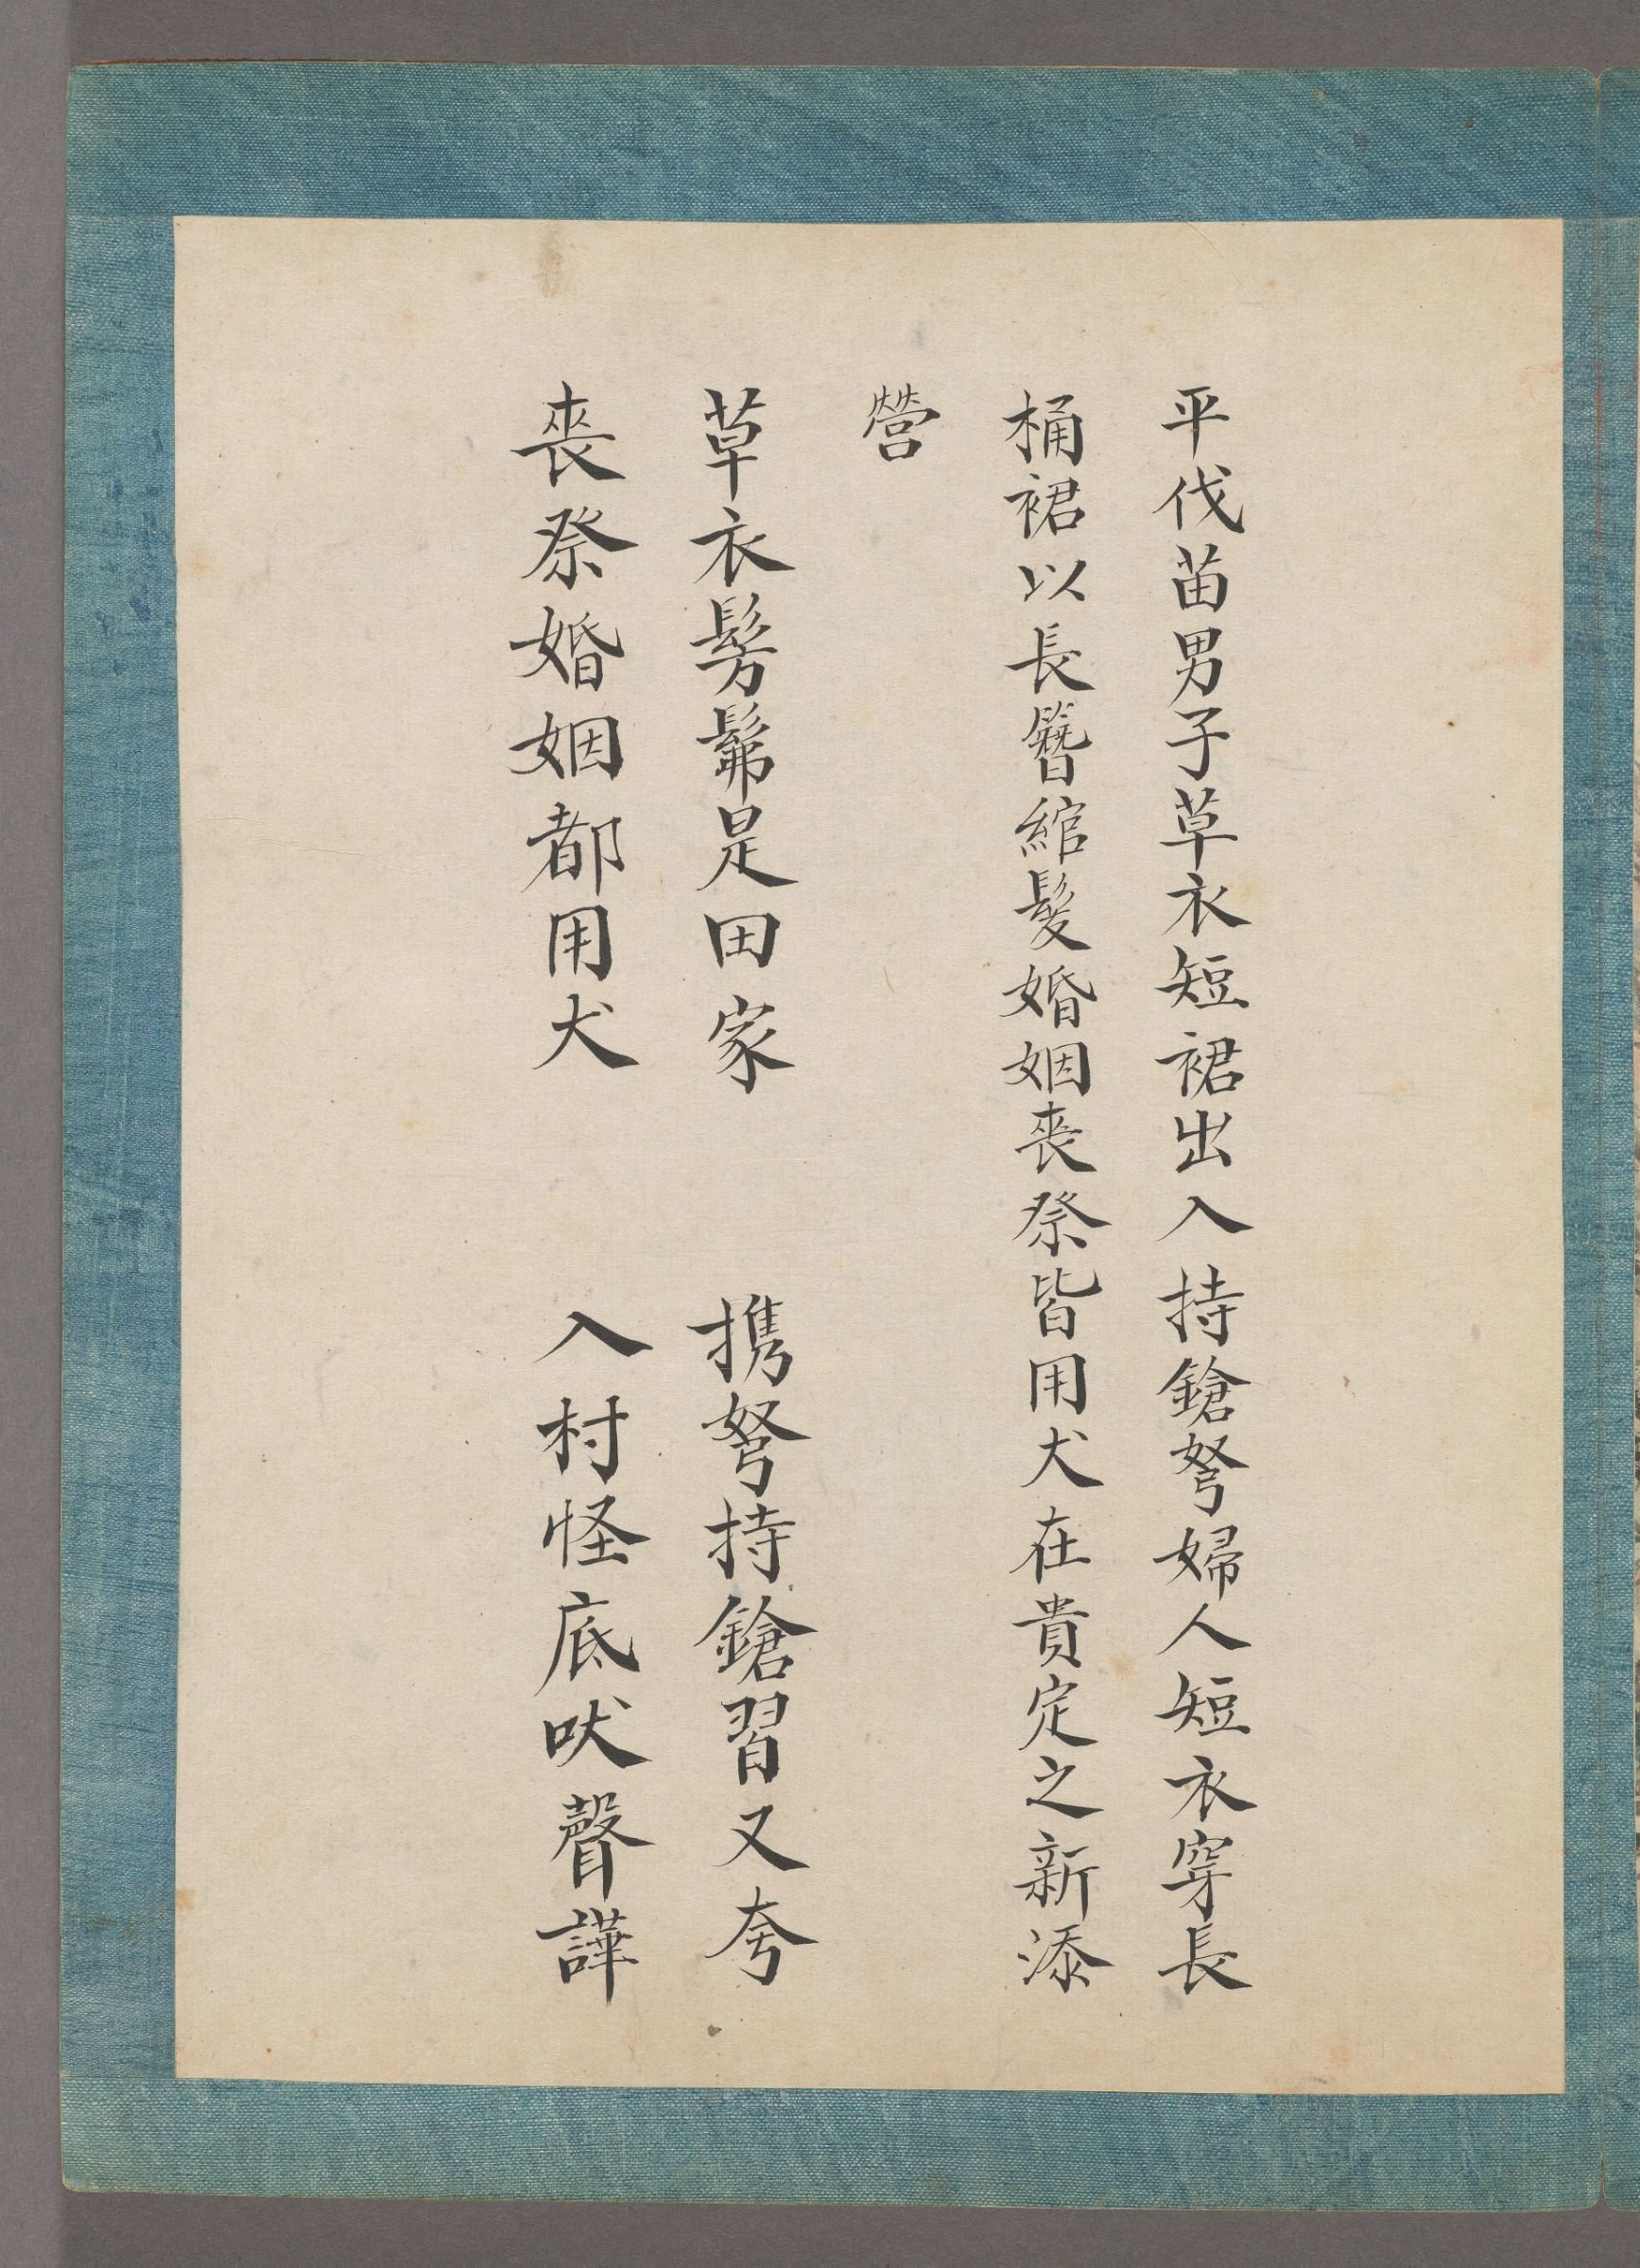 平伐苗男子草衣短裙出入持鎗弩婦人短衣穿長
桶裙以長簪綰髮婚姻喪祭皆用犬在貴定之新添
營
草衣髣髴是田家　携弩持鎗習又夸
喪祭婚姻都用犬　入村怪底吠聲譁